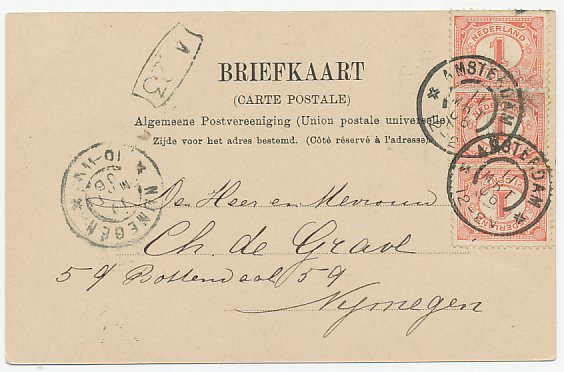 A 23
BRIEFKAART
(CARTE POSTALE)
Algemeene Postvereeniging (Union postale universelle)
Zijde voor het adres bestemd. (Côté réservé à l'adresse)
De Heer en Mevrouw
Ch. de Grave
59 Bottendaal 59
Nijmegen
NEDERLAND
1
NEDERLAND
1
AMSTERDAM
AMSTERDAM
NIJMEGEN